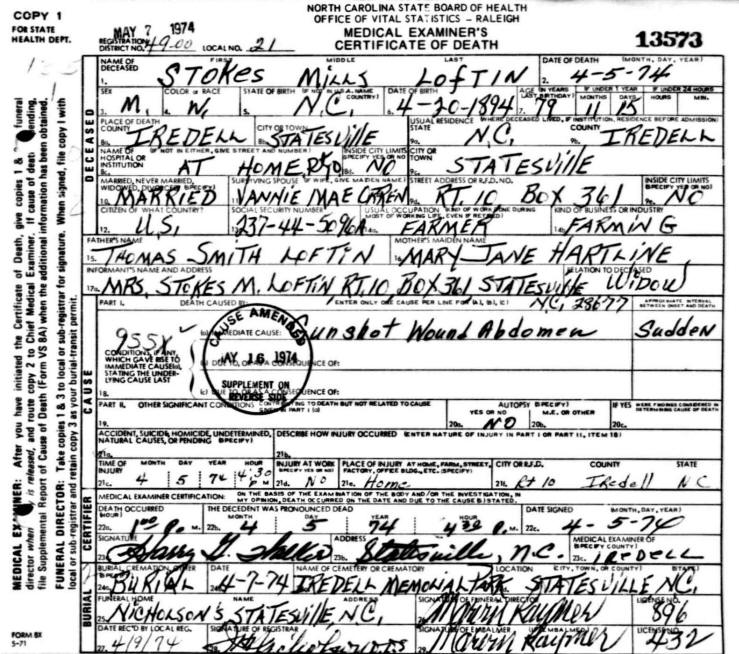 COPY 1
FOR STATE
HEALTH DEPT.
NORTH CAROLINA STATE BOARD OF HEALTH
OFFICE OF VITAL STATISTICS – RALEIGH
MEDICAL EXAMINER'S
CERTIFICATE OF DEATH
MAY 7 1974
REGISTRATION DISTRICT NO. 49-00 LOCAL NO. 21
13573
NAME OF DECEASED FIRST MIDDLE LAST DATE OF DEATH (MONTH, DAY, YEAR)
1. STOKES MILLS LOFTIN 2. 4-5-74
SEX COLOR OR RACE STATE OF BIRTH (IF NOT IN U.S.A. NAME COUNTRY) DATE OF BIRTH AGE (IN YEARS LAST BIRTHDAY) IF UNDER 1 YEAR MONTHS DAYS IF UNDER 24 HOURS HOURS MIN.
3. M. 4. W. 5. N.C. 6. 4-20-1894 7. 79 11 15
PLACE OF DEATH COUNTY CITY OR TOWN USUAL RESIDENCE (WHERE DECEASED LIVED, IF INSTITUTION, RESIDENCE BEFORE ADMISSION) STATE COUNTY
8a. IREDELL 8b. STATESVILLE 9a. N.C. 9b. IREDELL
NAME OF HOSPITAL OR INSTITUTION (IF NOT IN EITHER, GIVE STREET AND NUMBER) INSIDE CITY LIMITS (SPECIFY YES OR NO) CITY OR TOWN
8c. AT HOME, 8d. NO 9c. STATESVILLE
MARRIED, NEVER MARRIED, WIDOWED, DIVORCED (SPECIFY) SURVIVING SPOUSE (IF WIFE, GIVE MAIDEN NAME) STREET ADDRESS OR R.F.D. NO. INSIDE CITY LIMITS (SPECIFY YES OR NO)
10. MARRIED 11. VANNIE MAE 9d. RT. 10 BOX 361 9e. NO
CITIZEN OF WHAT COUNTRY? SOCIAL SECURITY NUMBER USUAL OCCUPATION (KIND OF WORK DONE DURING MOST OF WORKING LIFE, EVEN IF RETIRED) KIND OF BUSINESS OR INDUSTRY
12. U.S. 13. 237-44-5096A 14a. FARMER 14b. FARMING
FATHER'S NAME MOTHER'S MAIDEN NAME
15. THOMAS SMITH LOFTIN 16. MARY JANE HARTLINE
INFORMANT'S NAME AND ADDRESS RELATION TO DECEASED
17a. MRS. STOKES M. LOFTIN RT. 10, BOX 361 STATESVILLE WIDOW
N.C. 28677
PART I. DEATH CAUSED BY: ENTER ONLY ONE CAUSE PER LINE FOR (A), (B), (C) APPROXIMATE INTERVAL BETWEEN ONSET AND DEATH
955X
(a) IMMEDIATE CAUSE: Gunshot Wound Abdomen Sudden
CONDITIONS, IF ANY, WHICH GAVE RISE TO IMMEDIATE CAUSE(a), STATING THE UNDERLYING CAUSE LAST
(b) DUE TO, OR AS A CONSEQUENCE OF:
18. (c) DUE TO, OR AS A CONSEQUENCE OF:
CAUSE AMENDED
MAY 16 1974
SUPPLEMENT ON
REVERSE SIDE
PART II. OTHER SIGNIFICANT CONDITIONS CONTRIBUTING TO DEATH BUT NOT RELATED TO CAUSE GIVEN IN PART I (a) AUTOPSY (SPECIFY) YES OR NO M.E. OR OTHER IF YES WERE FINDINGS CONSIDERED IN DETERMINING CAUSE OF DEATH
19. 20a. NO 20b. 20c.
ACCIDENT, SUICIDE, HOMICIDE, UNDETERMINED, NATURAL CAUSES, OR PENDING (SPECIFY) DESCRIBE HOW INJURY OCCURRED (ENTER NATURE OF INJURY IN PART I OR PART II, ITEM 18)
21a. 21b.
TIME OF INJURY MONTH DAY YEAR HOUR INJURY AT WORK PLACE OF INJURY AT HOME, FARM, STREET, FACTORY, OFFICE BLDG., ETC. (SPECIFY) CITY OR R.F.D. COUNTY STATE
21c. 4 5 74 4:30 P. M. 21d. No 21e. Home 21f. Rt 10 Iredell N C
MEDICAL EXAMINER CERTIFICATION: ON THE BASIS OF THE EXAMINATION OF THE BODY AND/OR THE INVESTIGATION, IN MY OPINION, DEATH OCCURRED ON THE DATE AND DUE TO THE CAUSE(S) STATED.
DEATH OCCURRED (HOUR) THE DECEDENT WAS PRONOUNCED DEAD MONTH DAY YEAR HOUR DATE SIGNED (MONTH, DAY, YEAR)
22a. P. M. 22b. 4 5 74 4:30 P. M. 22c. 4-5-74
SIGNATURE ADDRESS MEDICAL EXAMINER OF (SPECIFY COUNTY)
23a. 23b. Statesville, N.C. 23c. Iredell
BURIAL, CREMATION, OTHER (SPECIFY) DATE NAME OF CEMETERY OR CREMATORY LOCATION (CITY, TOWN, OR COUNTY) (STATE)
24a. BURIAL 24b. 4-7-74 IREDELL MEMORIAL PARK STATESVILLE N.C.
FUNERAL HOME NAME ADDRESS SIGNATURE OF FUNERAL DIRECTOR LICENSE NO.
25. NICHOLSON'S STATESVILLE, N.C. Raymer 896
DATE REC'D BY LOCAL REG. SIGNATURE OF REGISTRAR SIGNATURE OF EMBALMER (IF EMBALMED) LICENSE NO.
27. 4/9/74 28. 29. Raymer 432
DECEASED
CAUSE
CERTIFIER
BURIAL
MEDICAL EXAMINER: After you have initiated the Certificate of Death, give copies 1 & funeral
director when is released, and route copy 2 to Chief Medical Examiner. If cause of death pending,
file Supplemental Report of Cause of Death (Form VS 8A) when the additional information has been obtained.
FUNERAL DIRECTOR: Take copies 1 & 3 to local or sub-registrar for signature. When signed, file copy 1 with
local or sub-registrar and retain copy 3 as your burial-transit permit.
FORM 8X
5-71